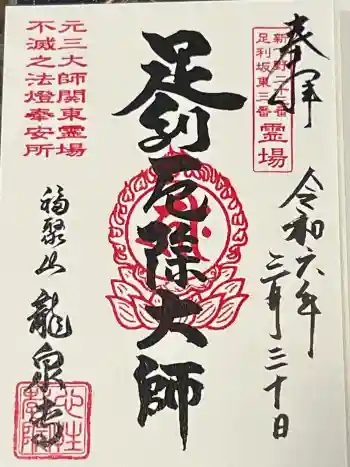 奉拝
新下野三十三番
足利坂東三番
霊場
令和六年
三月三十日
足利厄除大師
元三大師関東霊場
不滅之法燈奉安所
福聚山 龍泉寺